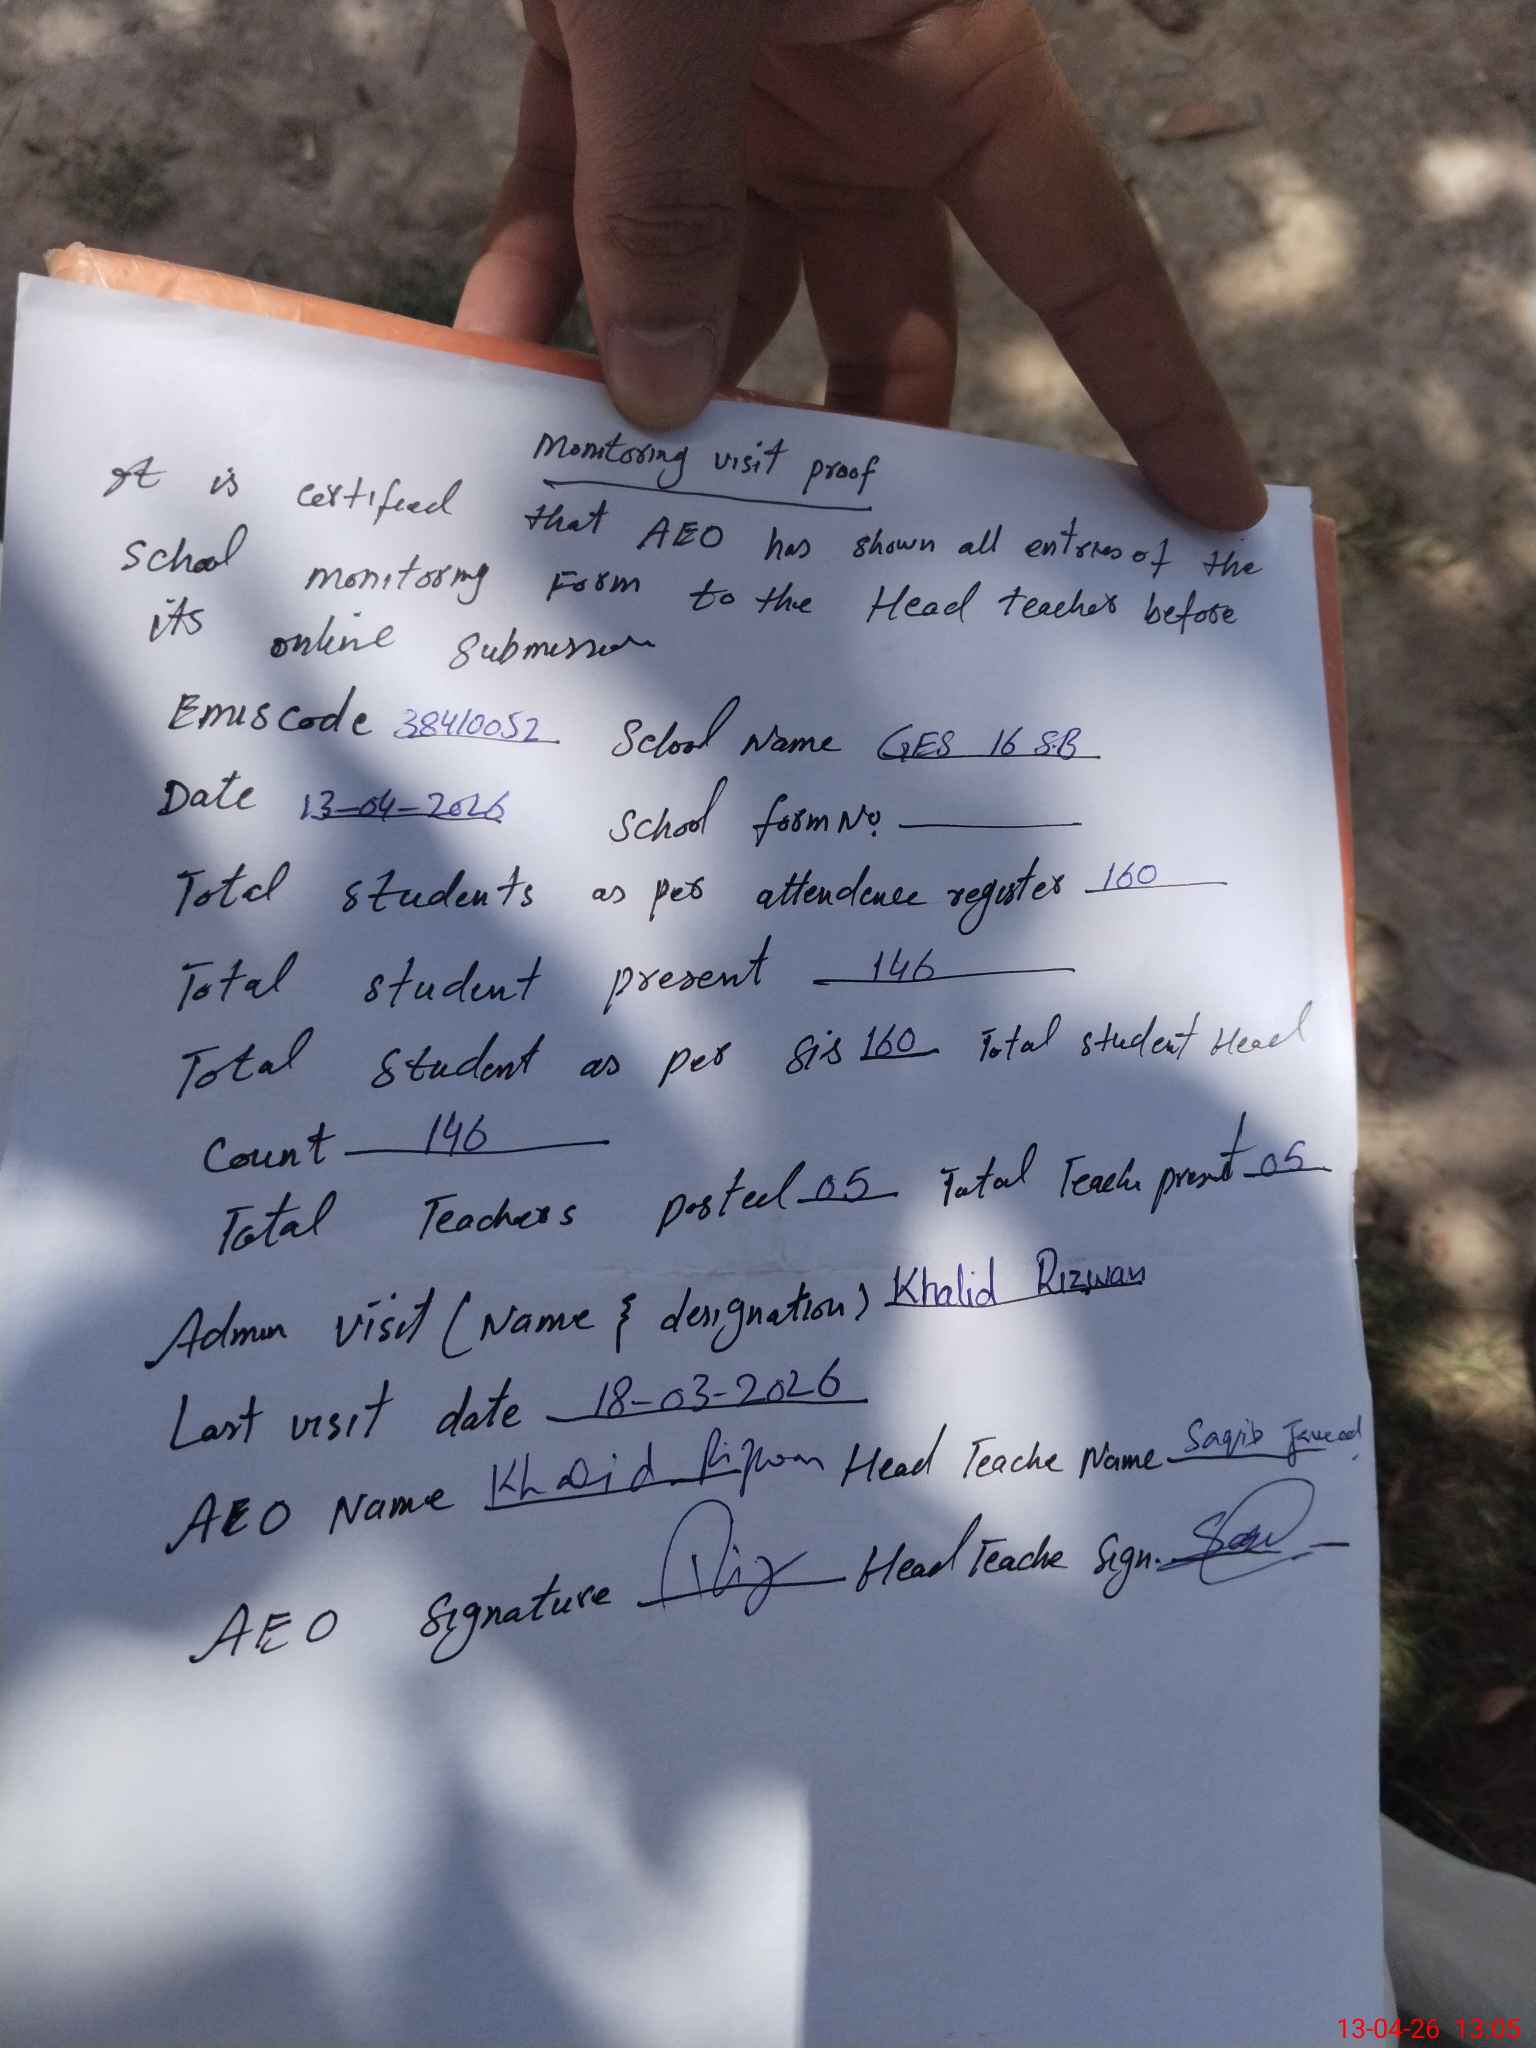 Monitoring visit proof
It is certified that AEO has shown all entries of the
School monitoring Form to the Head teacher before
its online Submission
Emis code 38410052 School Name GES 16 SB
Date 13-04-2026 School form No.
Total students as per attendence register 160
Total student present 146
Total Student as per Sis 160 Total student Head
Count 146
Total Teachers posted 05 Total Teache present 05
Admin visit (Name & designation) Khalid Rizwan
Last visit date 18-03-2026
AEO Name Khalid Rizwan Head Teache Name Saqib Javead
AEO Signature Riz Head Teache Sign.
13-04-26 13:05